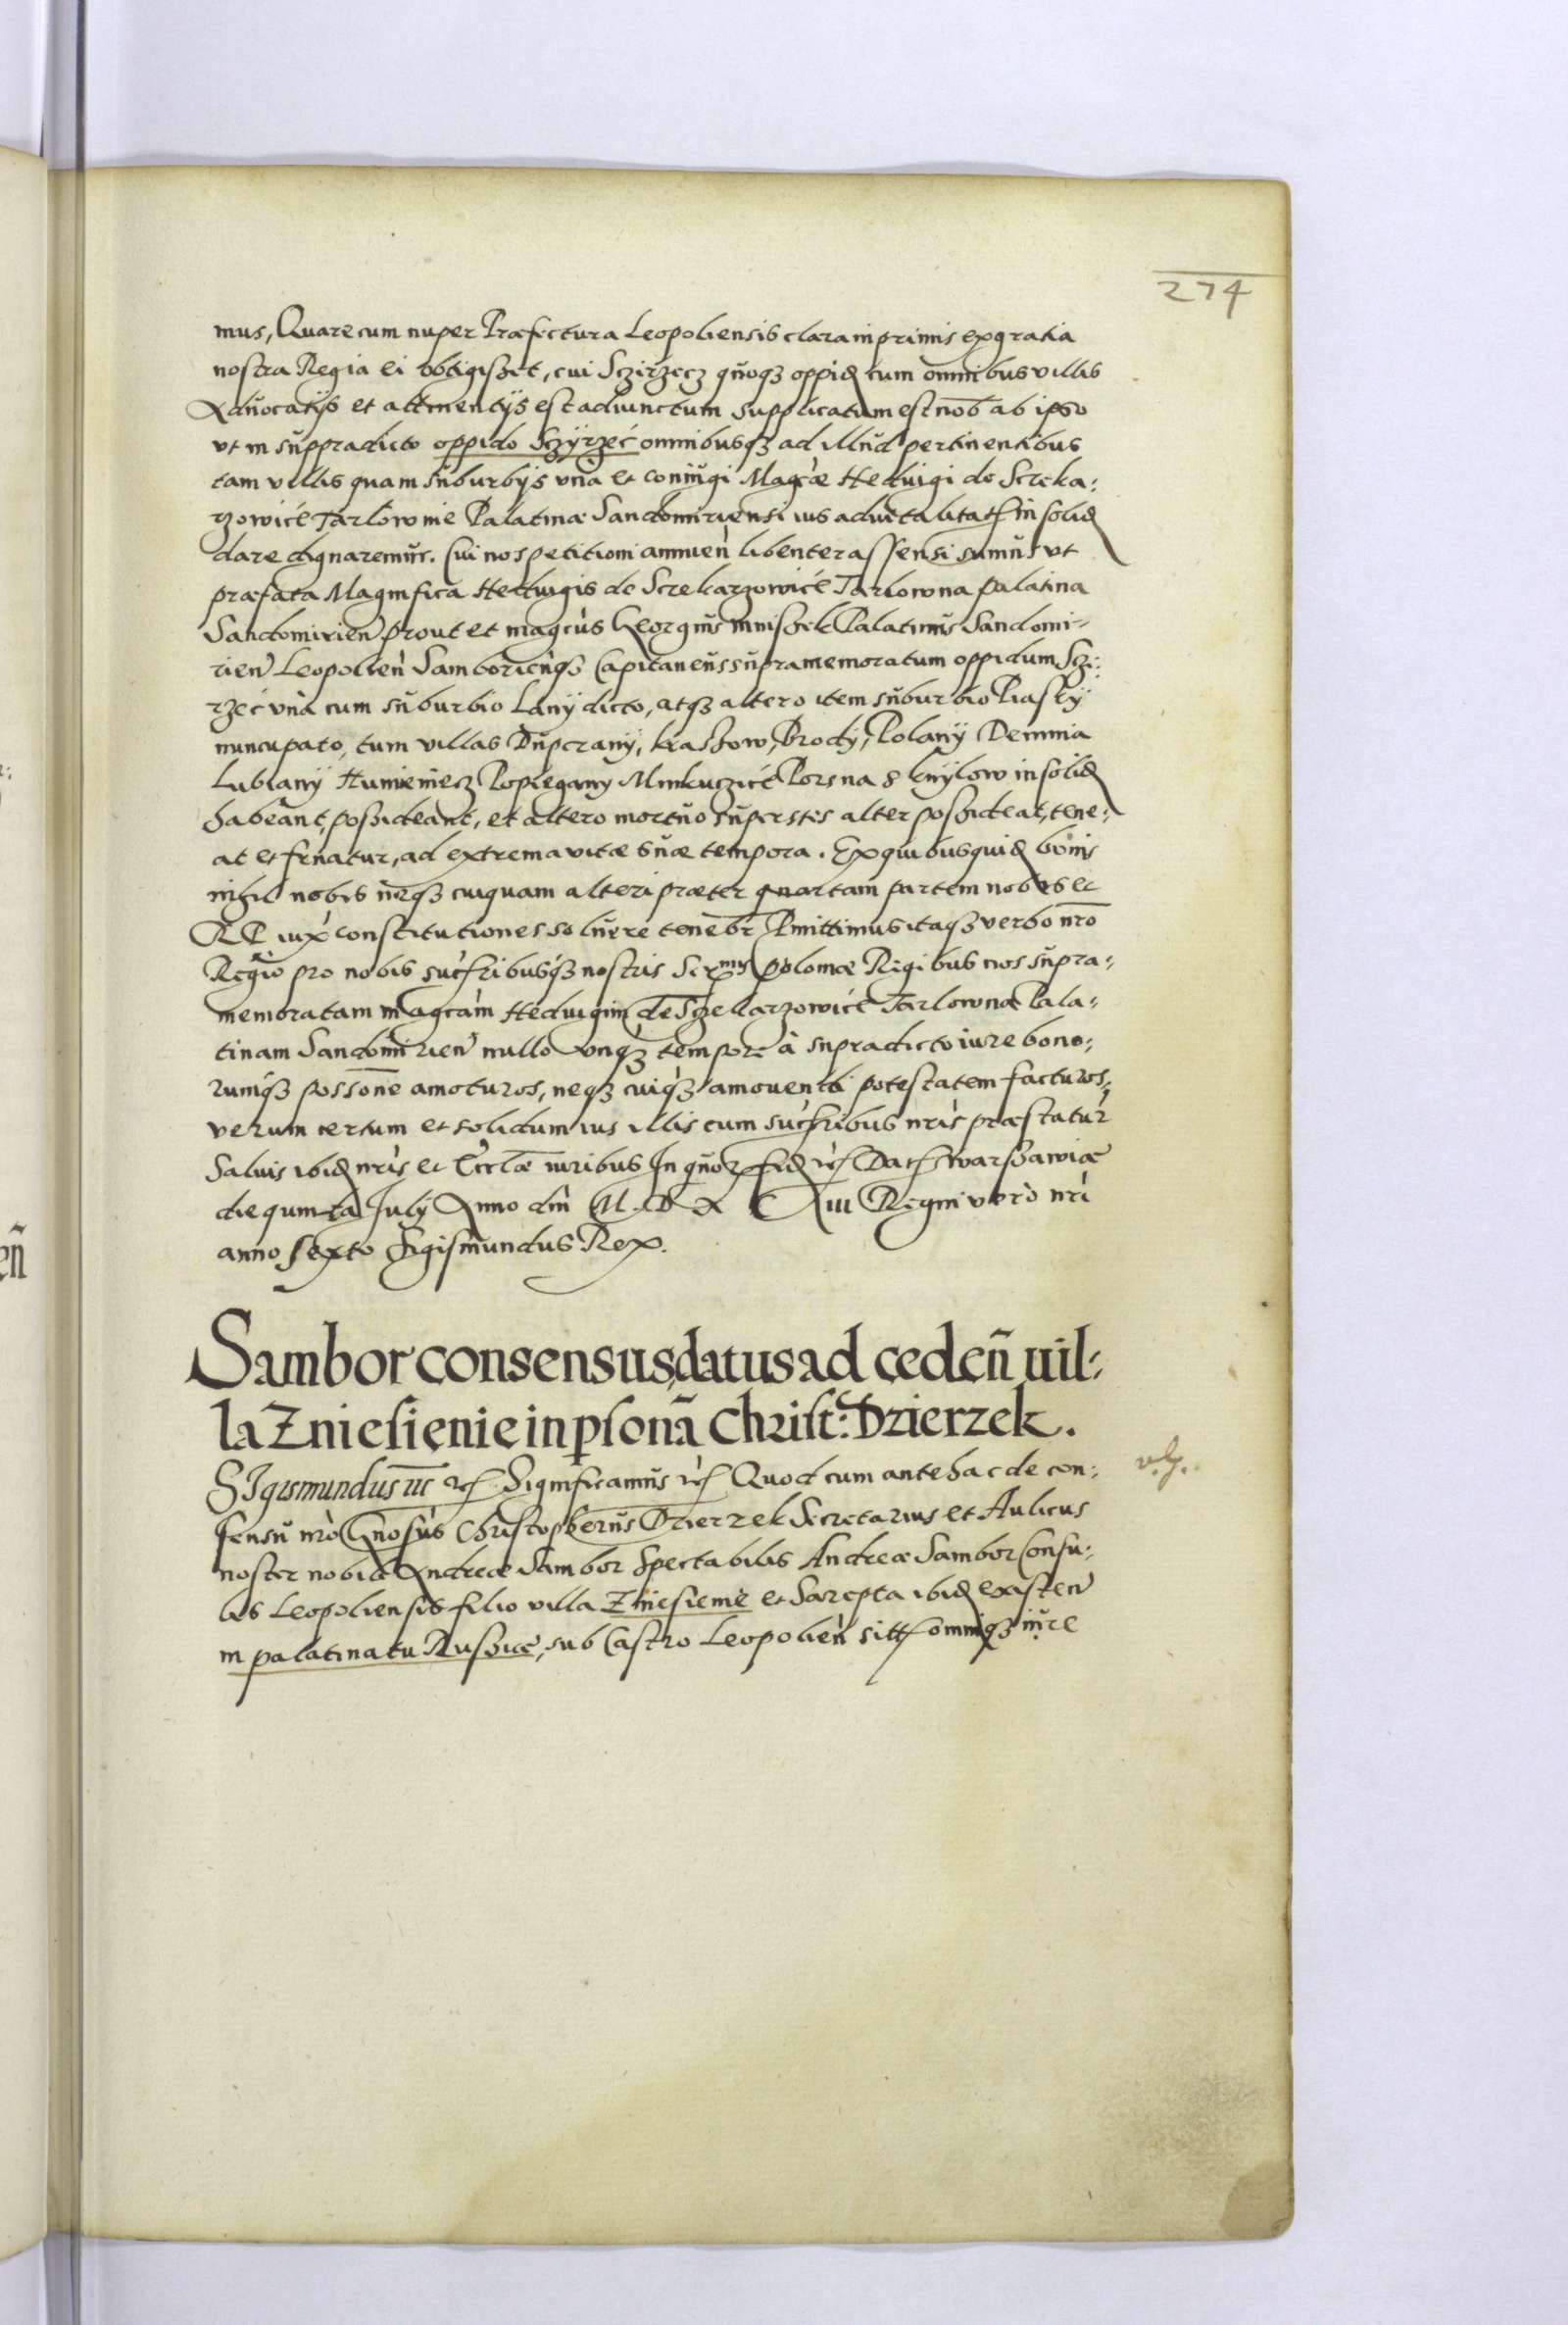 274
mus, Quare cum nuper Præfectura Leopoliensis clara inprimis ex gratia
nostra Regia ei obtigisset, cui Sczirzecz quoqз oppid cum omnibus villis
Advocatijs et attinentijs est adiunctum supplicatum est nob ab ipso
vt in suppradicto oppido Sczyrzeć omnibusqз ad illud pertinentibus
tam villis quam suburbijs vna et coniugi Magcæ Heduigi de Screka:
rzowić Tarlownie Palatinæ Sandomiriensi ius aduitalitat in solid
dare dignaremur. Cui nos petitioni annuen libenter assensi sumus vt
præfata Magnifica Heduigis de Screkarzowić Tarlowna palatina
Sandomirien prout et magcus Georgius mnisshek Palatinus Sandomi-
rien Leopolien Samborienqз Capitaneus supramemoratum oppidum Scz:
rzeć vna cum suburbio Lany dicto, atqз altero item suburbio Piasky
nuncupato, tum villas Dupczany, krassow, Brody, Polany Demnia
Lubiany Humieniecz Popiegany Minkuczicć Porsna & knylow in solid
habeant, possideant, et altero mortuo superstes alter possideat, tene:
at et fruatur, ad extrema vitæ suæ tempora. Ex quibus quid bonis
nihil nobis neqз cuiquam alteri præter quartam partem nobis et
RP iux constitutiones soluere tenebr Pmittimus itaqз verbo nro
Regio pro nobis sucribusqз nostris Ser^mis Poloniæ Regibus nos supra-
memoratam magcam Heduigim de Sczekarzowić Tarlowna Pala-
tinam Sandomirien nullo vnqз tempore à supradicto iure bono:
rumqз possone amoturos, neqз cuiqз amouendi potestatem facturos,
verum certum et solidum ius illis cum sucribus nris præstatur
Saluis ibid nris et Eccliæ iuribus In quor fid rč Dat Warsawiæ
die quinta July Anno dni M. D X C iii Regni vero nri
anno sexto Sigismundus Rex.
Sambor consensus datus ad ceden uil:
la Zniesienie in psonã Christ: Dzierzek.
SIgismundus iii rč Significamus rč Quod cum antehac de con:
sensu nro Gnosus Christopherus Dzierzek Secretarius et Aulicus
noster nobili Andreæ Sambor Spectabilis Andreæ Sambor Consu:
lis Leopoliensis filio villa Zniesienie et Sarepta ibid existen
in palatinatu Russiæ, sub Castro Leopolien sitt omniqз iure